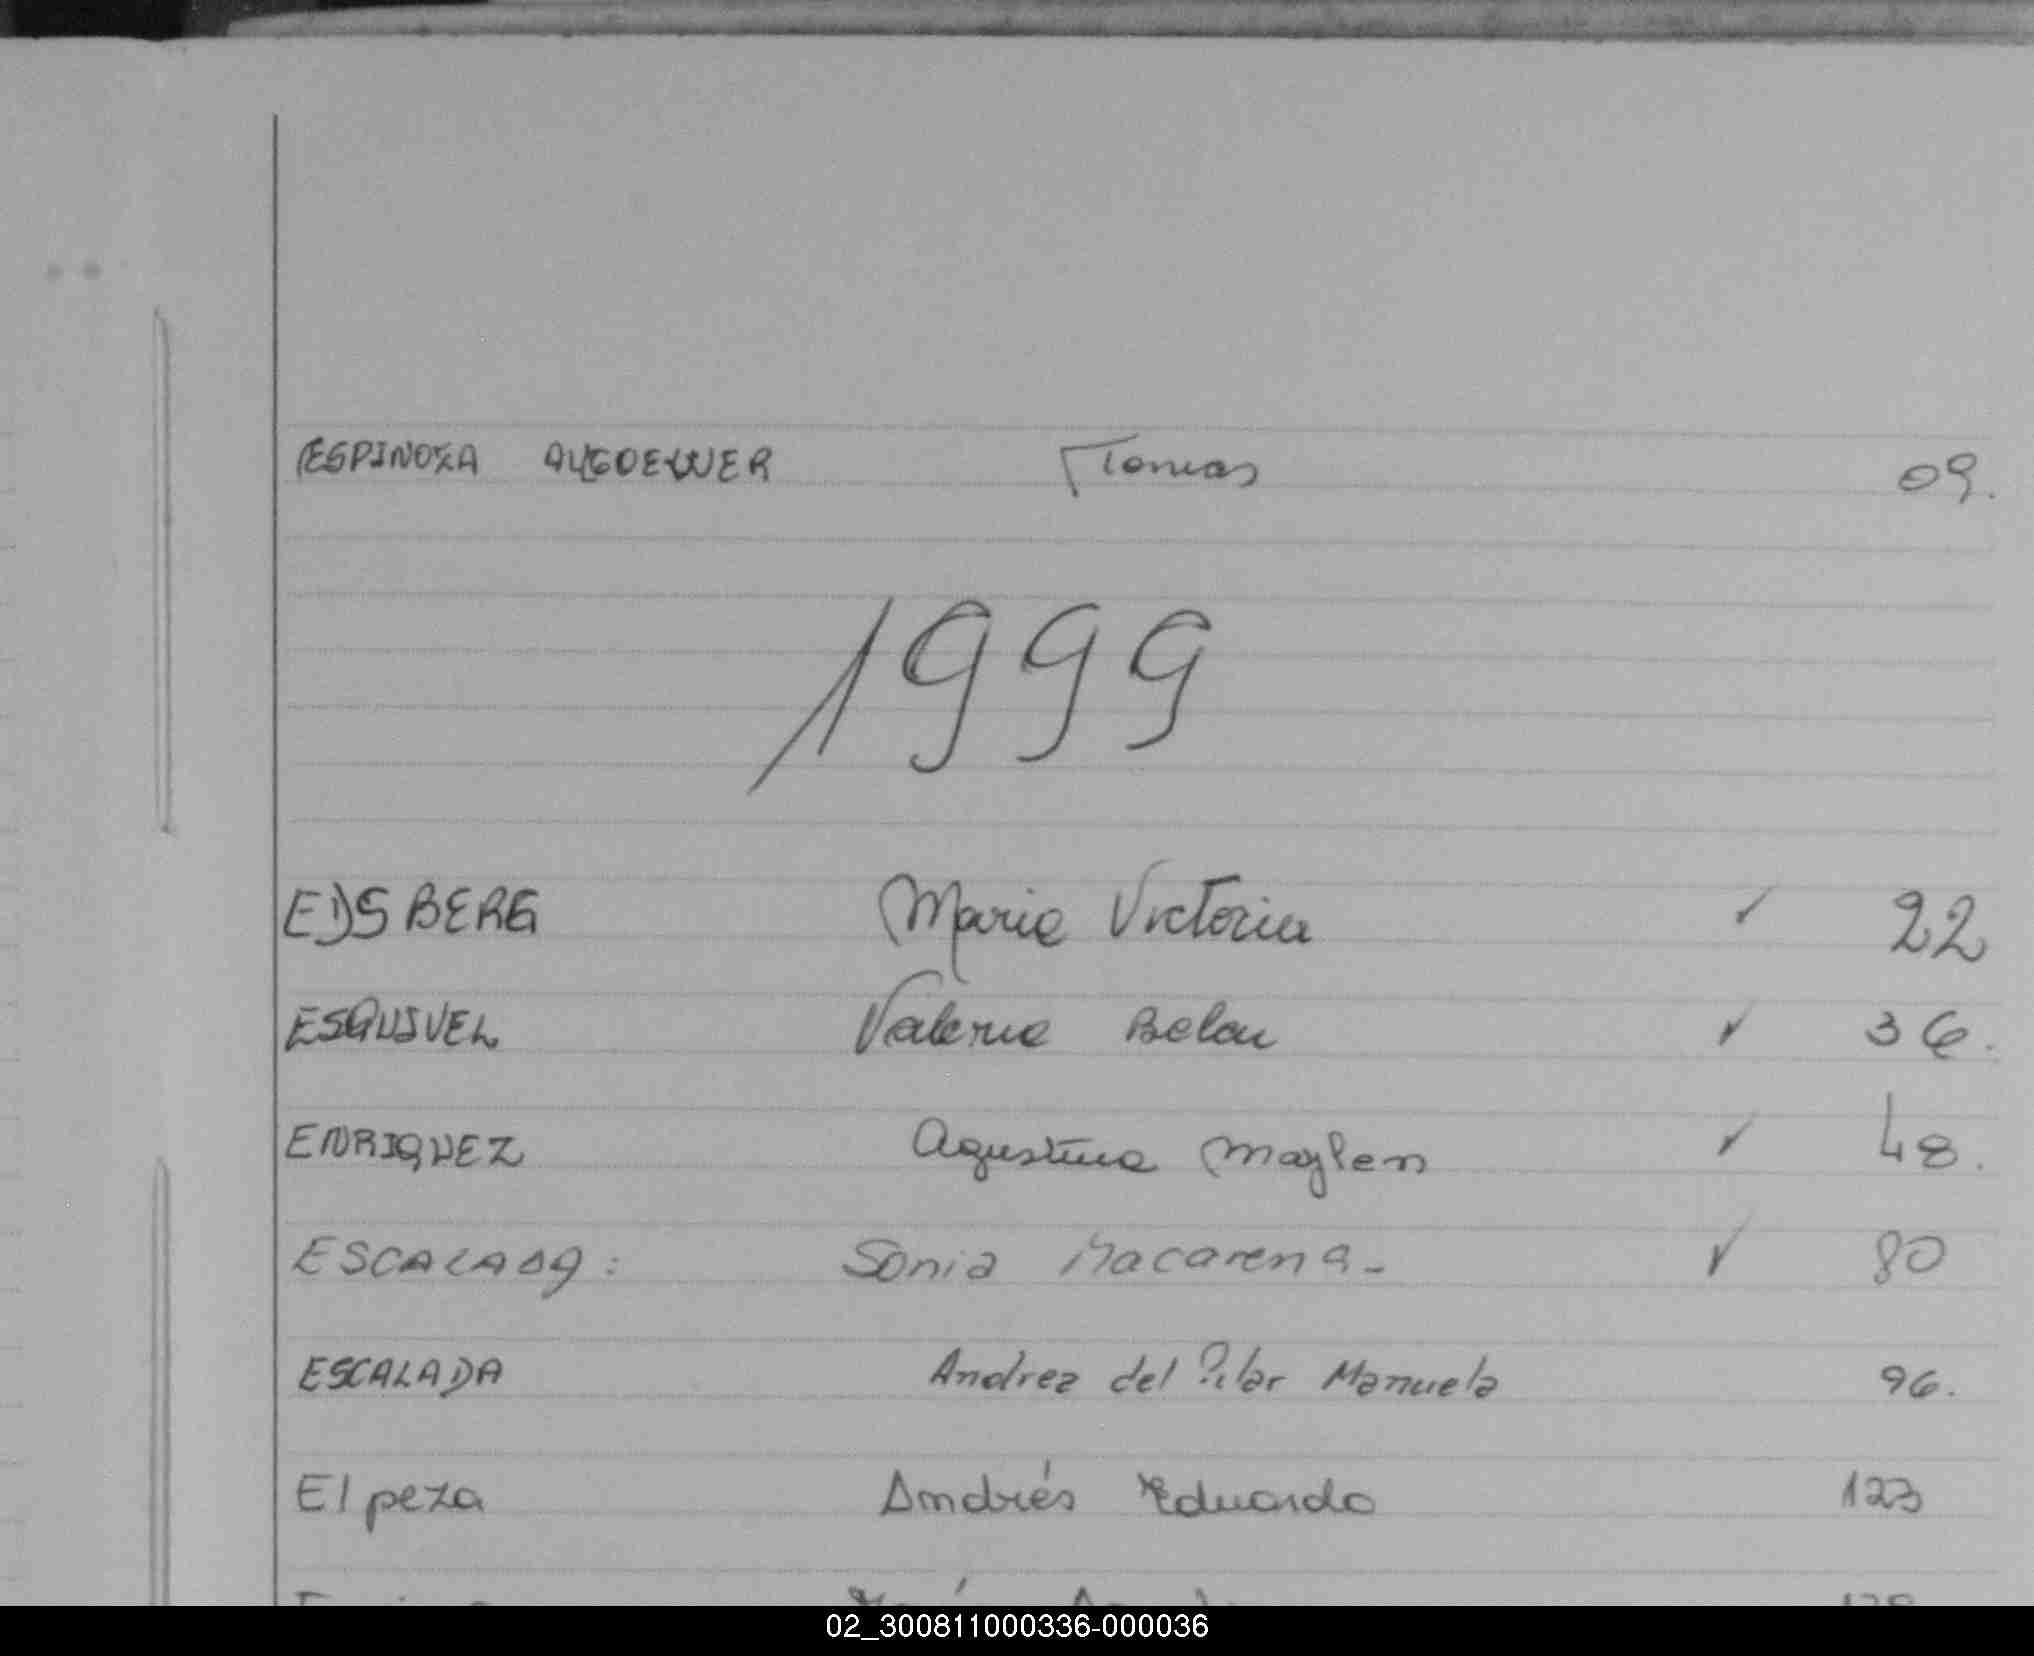 ESPINOZA Tomas 09.
1999
EDSBERG Maria Victoria ✓ 22
ESQUIVEL Valeria Belen ✓ 36.
ENRIQUEZ Agustina Maylen ✓ 48.
ESCALADA: Sonia Macarena- ✓ 80
ESCALADA Andrea del Pilar Manuela 96.
Elpeza Andrés Eduardo 123
02_300811000336-000036